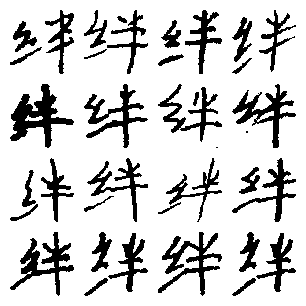 绊绊绊绊
绊绊绊绊
绊绊绊绊
绊绊绊绊